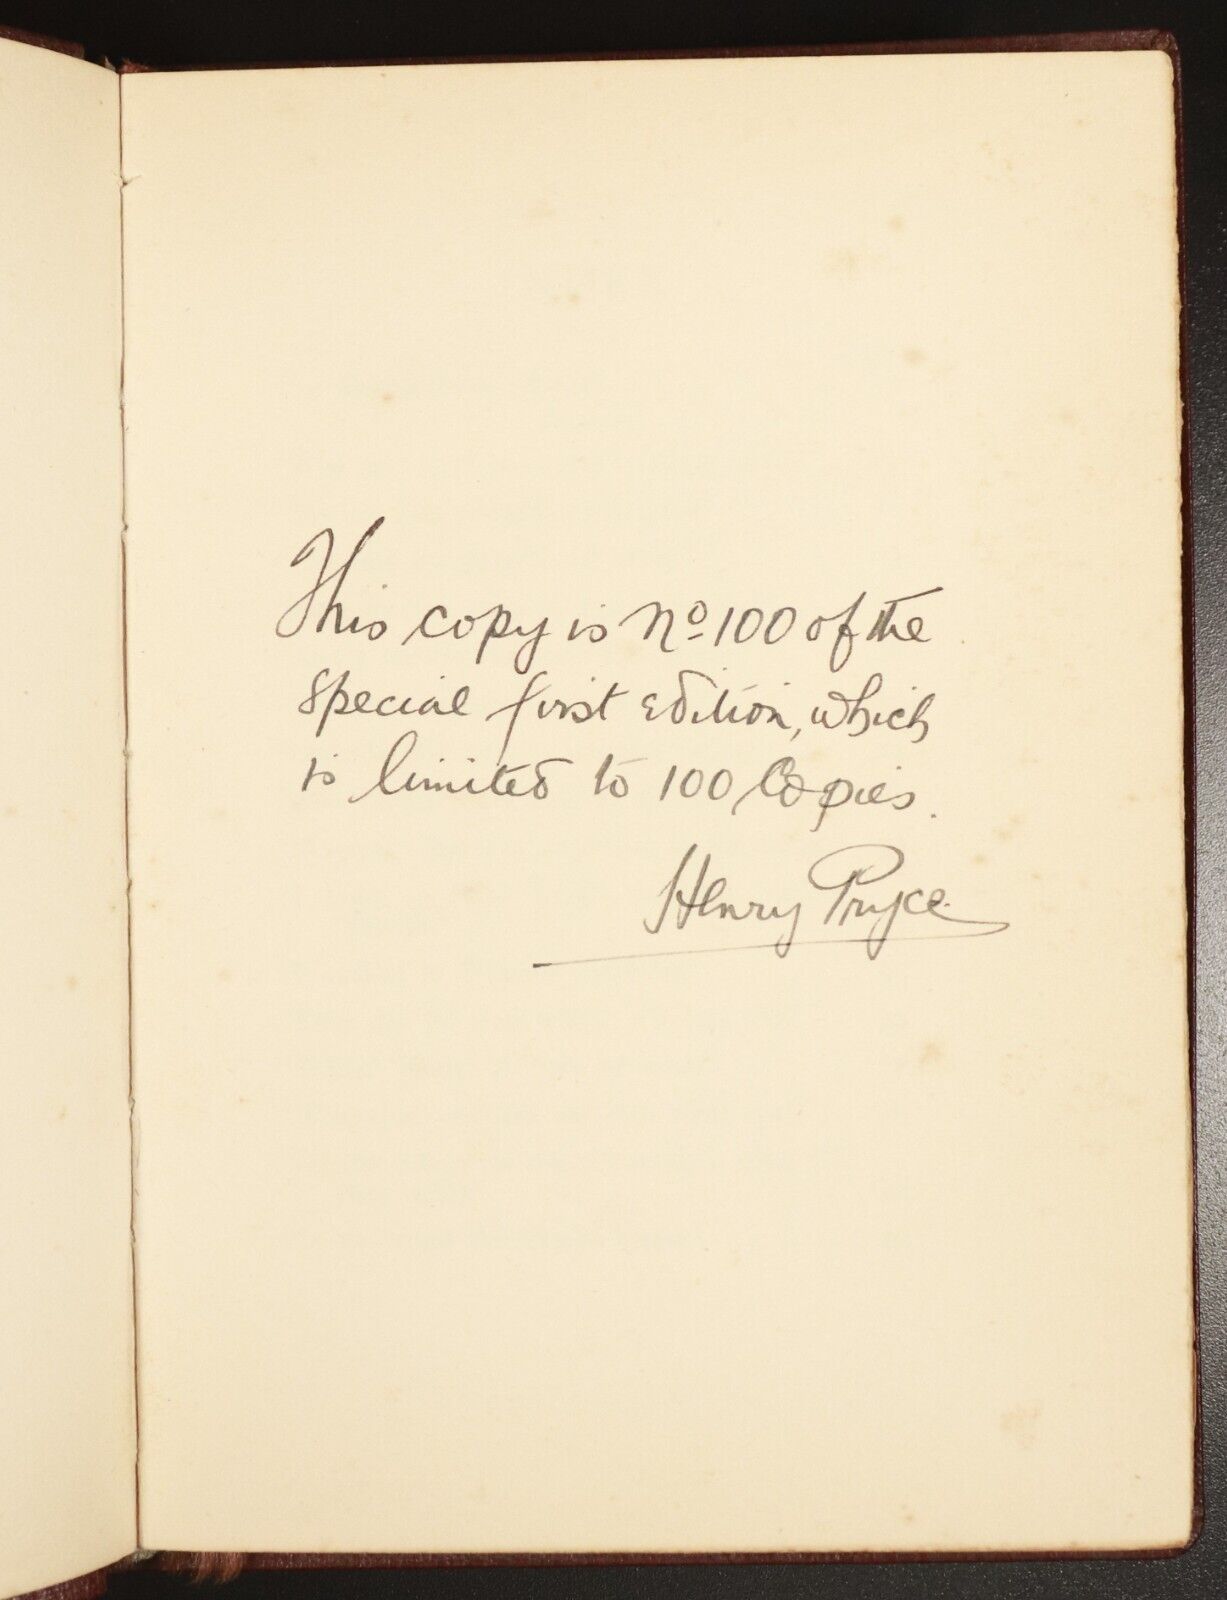 This copy is No 100 of the
special first edition, which
is limited to 100 Copies.
Henry Pryce